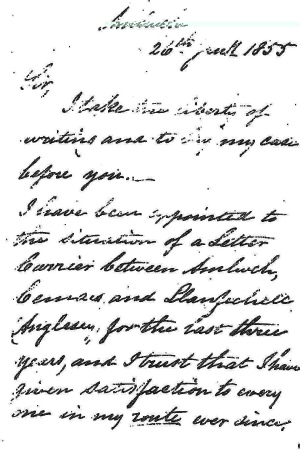 26th 1855
Sir
I take the liberty of
writing and to lay my case
before you.
I have been appointed to
the situation of a Letter
Carrier between Amlwch,
Cemaes and Llanfechell
Anglesey, for the last three
years, and I trust that I have
given satisfaction to every
one in my route ever since.